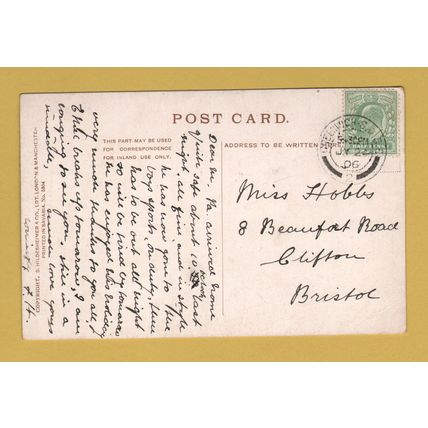 POST CARD.
THIS PART MAY BE USED
FOR CORRESPONDENCE
FOR INLAND USE ONLY.
ADDRESS TO BE WRITTEN
Dear Mr Pa. arrived home
quite safe about 10 last
night, all fine and in style
he has now gone to the
boys sports, on duty, then
has to be out all night
so will be tired by tomorrow
he has enjoyed his holiday
very much thanks to you all &
Ethel breaks up tomorrow, I am
longing to see you, still in a
muddle, much love yours
COPYRIGHT, S. HILDESHEIMER & CO., LTD. LONDON & MANCHESTER
PRINTED IN BAVARIA. No. 5394
HALFPENNY
06
Miss Hobbs
8 Beaufort Road
Clifton
Bristol